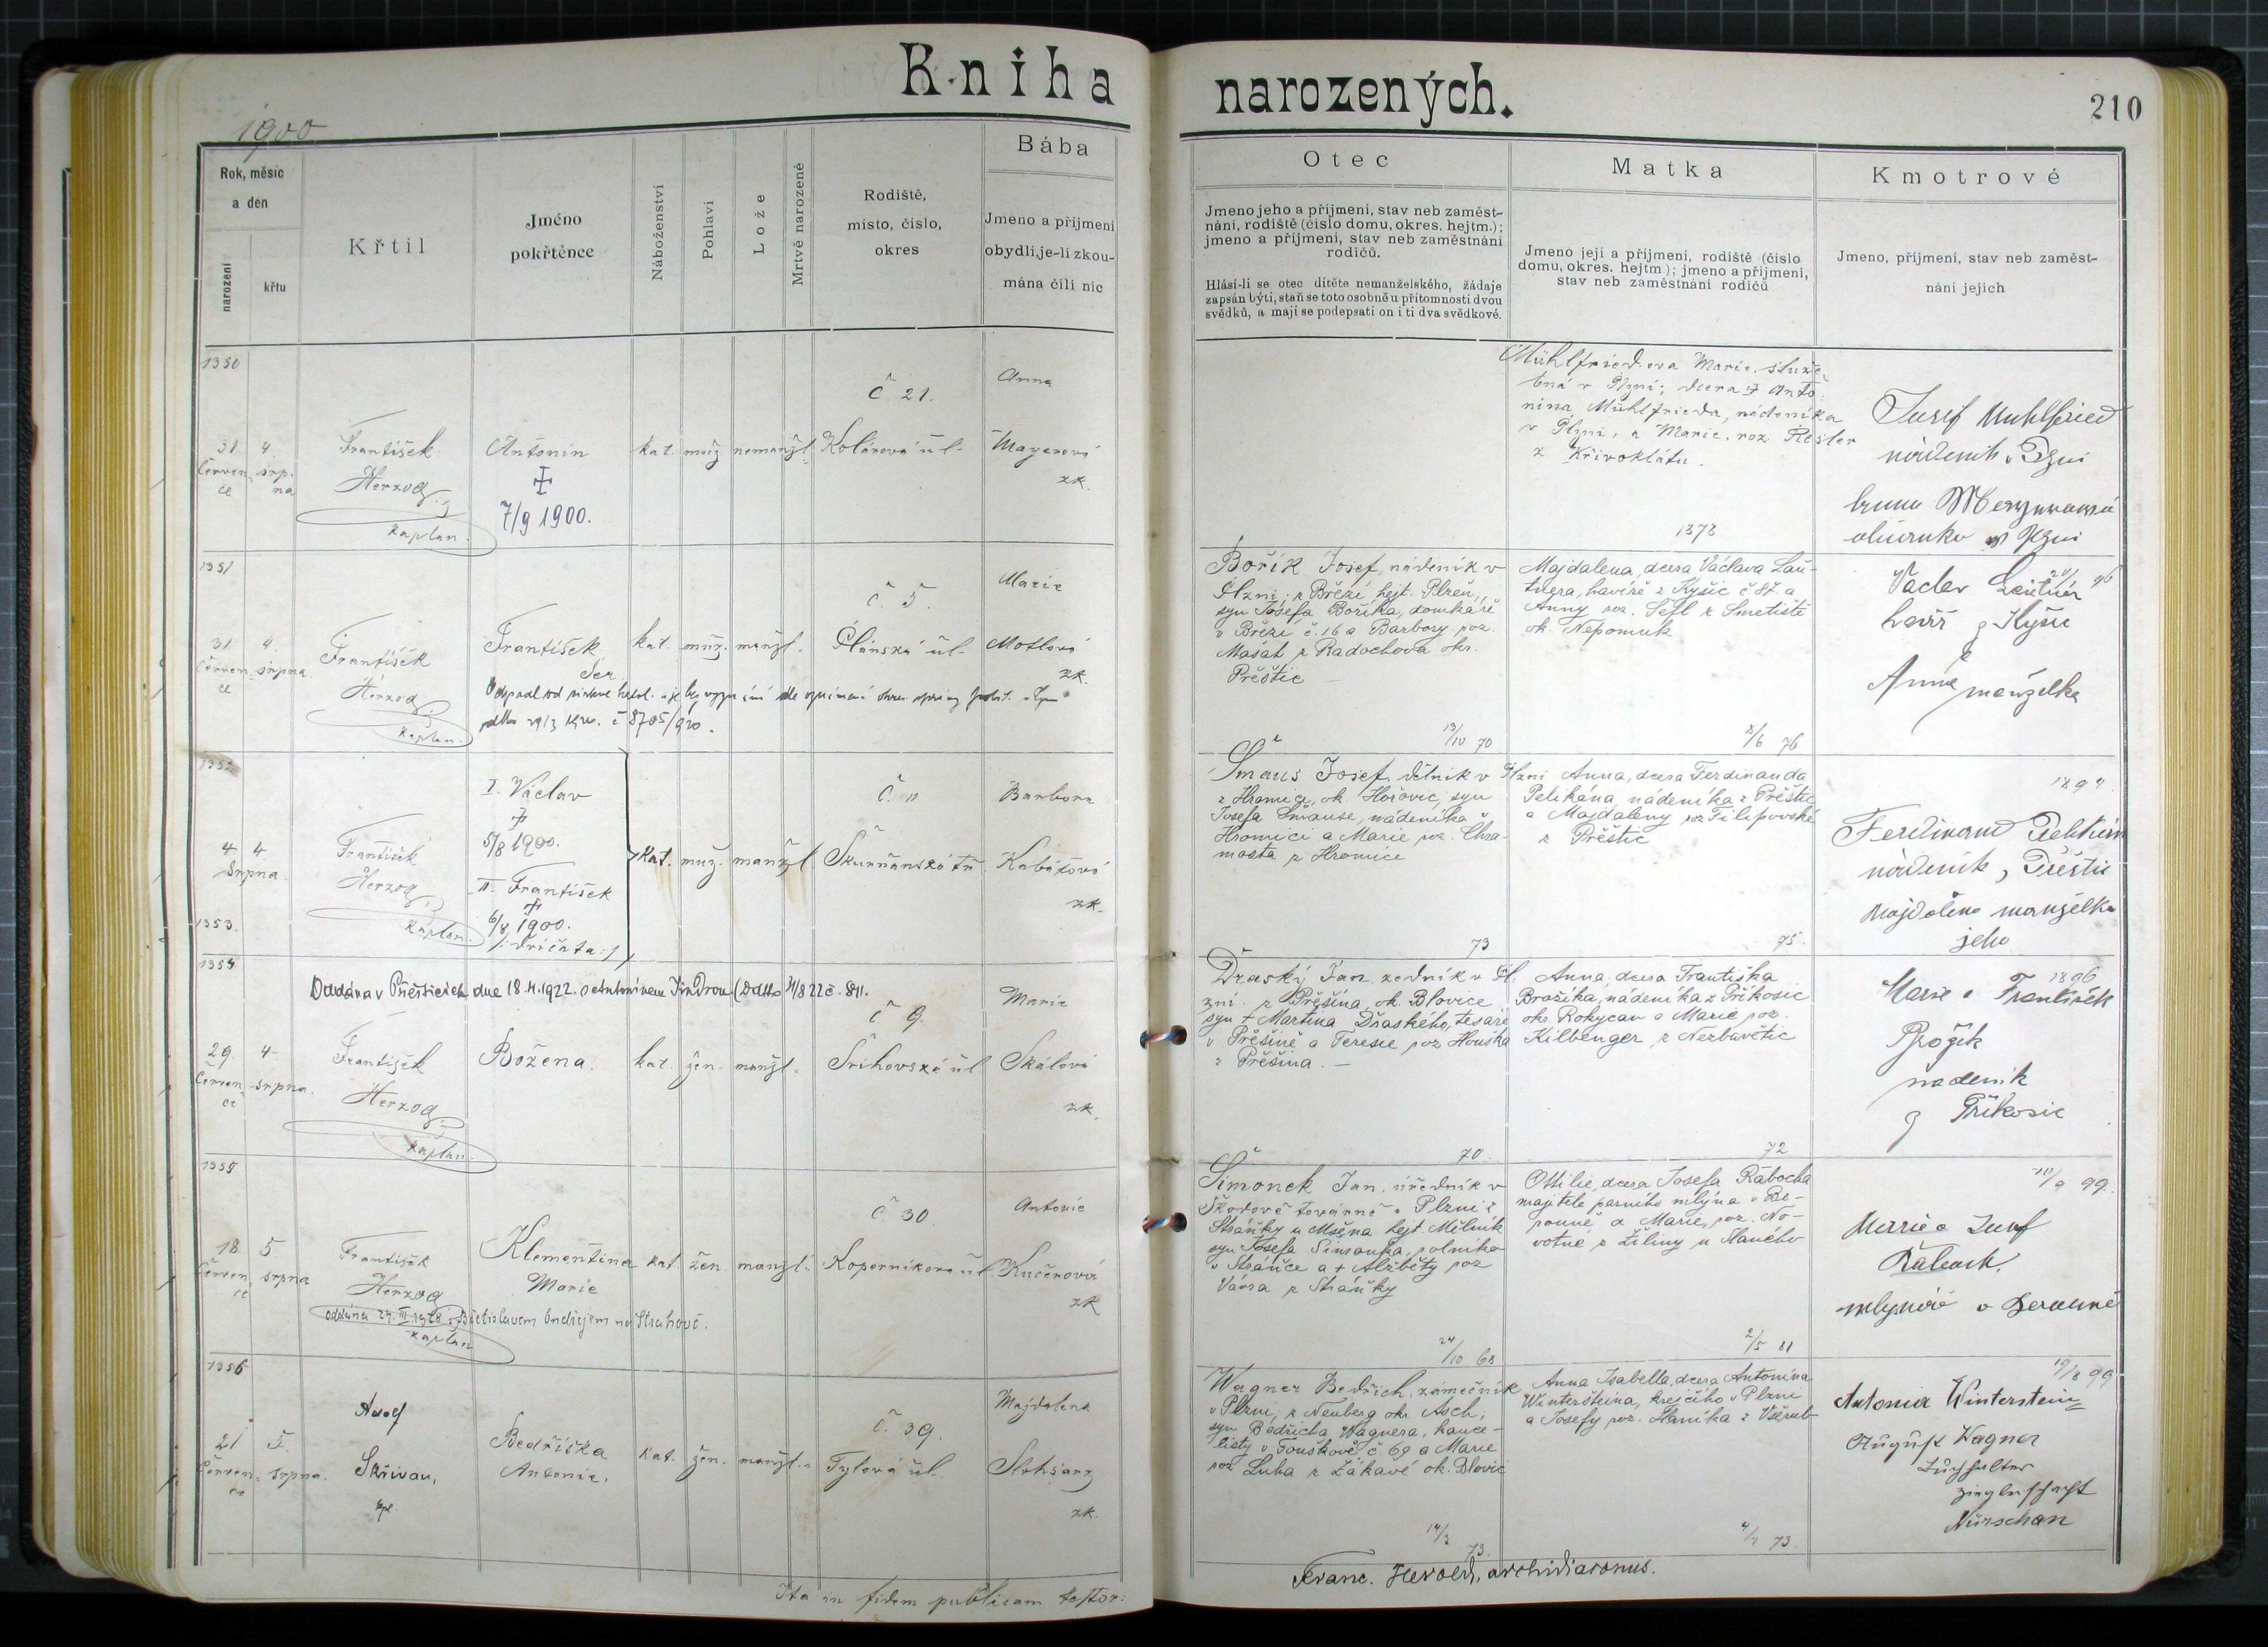 Kniha
narozených.
210
1900
Rok, měsíc
a den
narození
křtu
Křtil
Jméno
pokřtěnce
Náboženství
Pohlaví
Lože
Mrtvě narozené
Rodiště,
místo, číslo,
okres
Bába
Jmeno a příjmení
obydlí, je-li zkou-
mána čili nic
Otec
Jmeno jeho a příjmení, stav neb zaměst-
nání, rodiště (číslo domu, okres. hejtm.);
jmeno a příjmení, stav neb zaměstnání
rodičů.
Hlásí-li se otec dítěte nemanželského, žádaje
zapsán býti, staň se toto osobně u přítomnosti dvou
svědků, a mají se podepsati on i ti dva svědkové.
Matka
Jmeno její a příjmení, rodiště (číslo
domu, okres. hejtm); jmeno a příjmení,
stav neb zaměstnání rodičů
Kmotrové
Jmeno, příjmení, stav neb zaměst-
nání jejich
1350
31 4
červen- srp-
ce na
František
Herzog
kaplan.
Antonín
7/9 1900.
kat. muž. nemanžl.
č 21.
Kolárova ul.
Anna
Mayerová
zk.
Mühlfriedova Marie, služe-
bná v Plzni; dcera Anto-
nina Mühlfrieda, nádeníka
v Plzni, a Marie, roz. Resler
z Křivoklátu.
1878
Josef Muhlfried
nádeník v Plzni
v Plzni
1351
31 4.
červen- srpna
ce
František
Herzog
kaplan.
František
Ser
č 8705/920.
kat. muž. manžl.
č. 5.
Plánská ul.
Marie
Motlová
zk.
Bořík Josef, nádeník v
Plzni; z Březí hejt. Plzeň,
syn Josefa Boříka, domkáře
v Březí č. 16 a Barbory roz.
Masat z Radochova okr.
Přeštic
19/10 70
Majdalena, dcera Václava Lau-
tnera, havíře z Kyšic č 87 a
Anny roz. Šefl z Smetiště
ok. Nepomuk
8/6 76
96
Václav
havíř z Kyšic
Anna manželka
1352
4 4
srpna
1353.
František
Herzog
kaplan.
I. Václav
5/8 1900.
II. František
6/8 1900.
/: dvojčata :/
kat. muž. manžl.
č. 11
Skurňanská tř.
Barbora
Kabátová
zk.
Šmaus Josef, dělník v Plzni
z Hromic, ok. Hořovic, syn
Josefa Šmause, nádeníka v
Hromici a Marie roz. Chra-
mosta z Hromice
73
Anna, dcera Ferdinanda
Pelikána, nádeníka z Přeštic
a Majdaleny roz Filipovské
z Přeštic
75
189
Ferdinand Pelikán
nádeník, Přeštic
Majdalena manželka
jeho
1354
Oddána v Přešticích dne 18.4.1922 s Antonínem Jindrou (Ddto 4/8 22 č. 811.
29. 4.
červen- srpna.
ce
František
Herzog
kaplan.
Božena.
kat. žen. manžl.
č 9.
Srihovská ul
Marie
Skálová
zk.
Draský Jan, zedník v Pl-
zni z Přešína, ok. Blovice
syn + Martina Draského, tesaře
v Přešíně a Teresie roz Houška
z Přešína. —
70
Anna, dcera Františka
Brožíka, nádeníka z Příkosic
okr. Rokycan a Marie roz.
Kilbenger z Nezbavětic
72
1896
Marie a František
Brožík
nadeník
z Příkosic
1355
18 5.
červen- srpna
ce
František
Herzog
kaplan
Klementina
Marie
oddána 29. III. 1928 s Břetislavem Ondřejem na Strahově.
kat. žen. manžl.
č. 30
Koperníkova ul
Antonie
Kučerová
zk
Šimonek Jan, úředník v
Škodově továrně v Plzni z
Stránky u Mšena hejt. Mělník
syn Josefa Šimonka, rolníka
v Stránce a + Alžběty roz
Vávra z Stránky
24/10 68
Ottilie, dcera Josefa Rabocha
majitele parního mlýna v Be-
rouně a Marie, roz. No-
votné z Žiliny u Slaného
2/5 81
10/9 99
Marie a Josef
mlynář v Berouně
1356
21 5.
červen- srpna.
ce
Adolf
Skřivan,
kpl.
Bedřiška
Antonie.
kat. žen. manžl.
č. 39.
Tylova ul.
Majdalena
zk.
Wagner Bedřich, zámečník
v Plzni, z Neuberg okr. Asch;
syn Bedřicha Wagnera, kance-
listy v Touškově č. 69 a Marie
roz Luba z Žákavé ok. Blovic
14/3 73.
Anna Isabella, dcera Antonína
Wintersteina, krejčího v Plzni
a Josefy roz. Haníka z Všerub
4/7 73.
19/8 99
Antonia Winterstein
August Wagner
Buchhalter
Nürschan
Ita in fidem publicam testor:
Franc. Herold, archidiaconus.